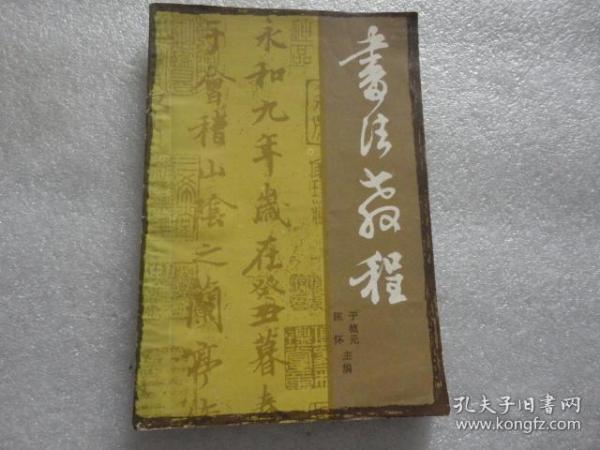 書法教程
于植元
陈怀 主编
永和九年歲在癸丑暮春
于會稽山陰之蘭亭脩
孔夫子旧书网
www.kongfz.com